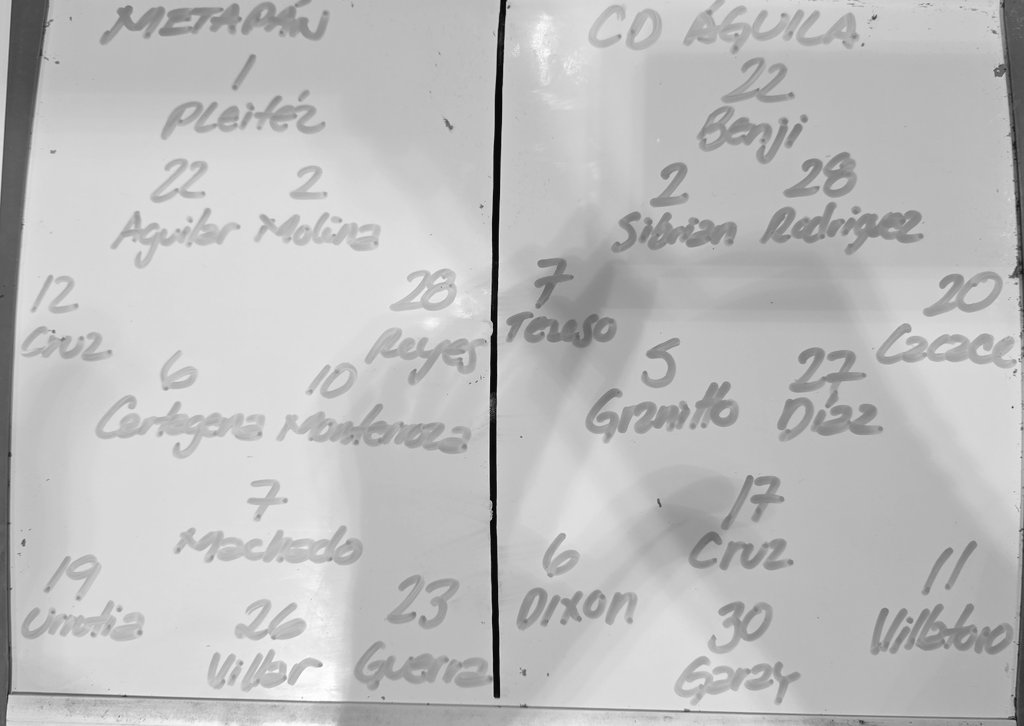 METAPÁN
1
Pleitéz
22 2
Aguilar Molina
12 28
Cruz Reyes
6 10
Cartagena Monterroza
7
Machado
19 26 23
Urrutia Villar Guerra
CD ÁGUILA
22
Benji
2 28
Sibrian Rodriguez
7 20
Teruso Cacace
5 27
Granitto Díaz
17
Cruz
6 11
Dixon Villatoro
30
Garay